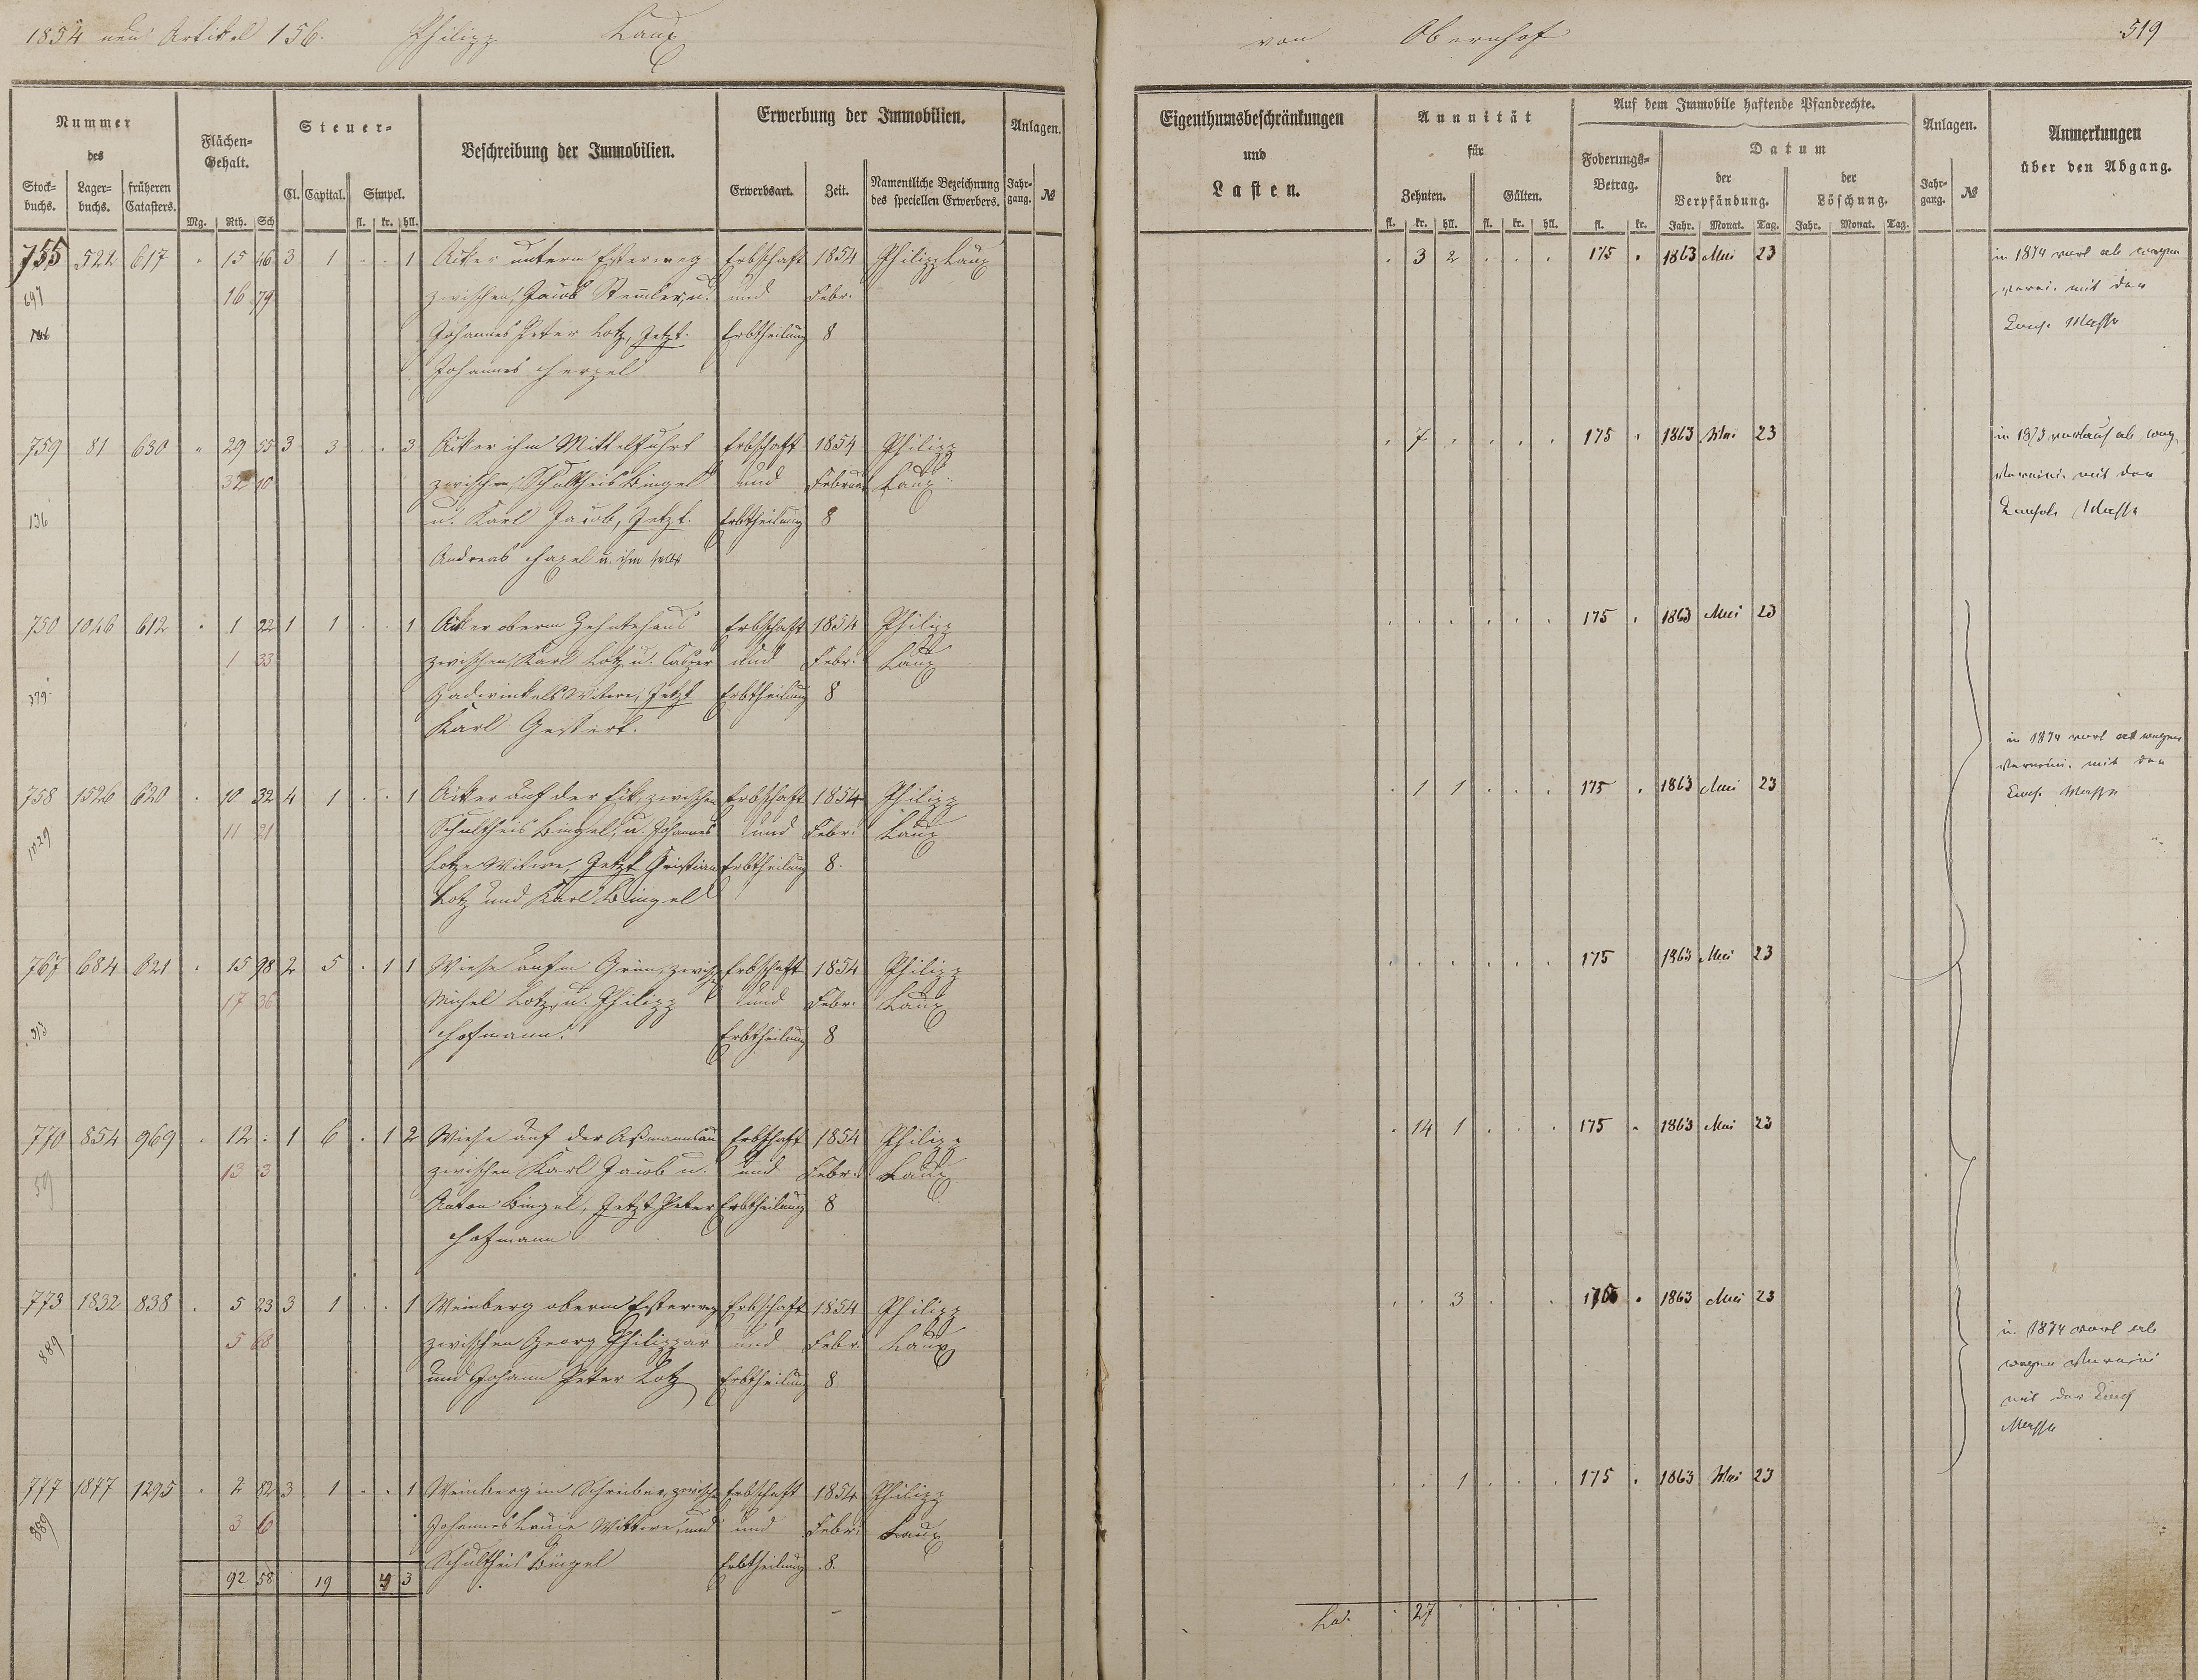 1854 neu Artikel 156. Philipp Laux
von Obernhof 519
Nummer des
Stock-buchs. Lager-buchs. früheren Catasters.
Flächen-Gehalt.
Mg. Rth. Sch
Steuer-
Cl. Capital. Simpel.
fl. kr. hll.
Beschreibung der Immobilien.
Erwerbung der Immobilien.
Erwerbsart. Zeit. Namentliche Bezeichnung des speciellen Erwerbers.
Anlagen.
Jahr-gang. №
Eigenthumsbeschränkungen und Lasten.
Annuität für
Zehnten. Gülten.
fl. kr. hll. fl. kr. hll.
Auf dem Immobile haftende Pfandrechte.
Foderungs-Betrag.
fl. kr.
Datum
der Verpfändung. der Löschung.
Jahr. Monat. Tag. Jahr. Monat. Tag.
Anlagen.
Jahr-gang. №
Anmerkungen über den Abgang.
755 522 617 15 46 3 1 1 Acker unterm Esterweg Erbschaft 1854 Philipp Laux 3 2 175 1863 Mai 23 in 1874 ab wegen
697 16 79 zwischen Jacob u. und Febr. mit der
Johannes Peter Lotz, Jetzt Erbtheilung 8 Masse
Johannes
759 81 630 29 55 3 3 3 Acker Erbschaft 1854 Philipp 7 175 1863 Mai 23 in 1873 ab
32 10 zwischen Schultheis Bingel und Februar Laux mit der
136 u. Karl Jacob, Jetzt Erbtheilung 8 Masse
Andreas u. ihm selbst
750 1046 612 1 22 1 1 1 Acker oberm Zehntehaus Erbschaft 1854 Philipp 175 1863 Mai 23
1 33 zwischen Karl Lotz u. und Febr. Laux
379 Witwe, Jetzt Erbtheilung 8
Karl
in 1874 ab wegen
mit der
758 1526 620 10 32 4 1 1 Acker auf der Eck, zwischen Erbschaft 1854 Philipp 1 1 175 1863 Mai 23 Masse
1029 11 21 Schultheis Bingel, u. Johannes und Febr. Laux
Lotz Witwe, Jetzt Christian Erbtheilung 8.
Lotz und Karl Bingel
767 684 621 15 98 2 5 1 1 Wiese zwischen Erbschaft 1854 Philipp 175 1863 Mai 23
17 36 Michel Lotz, u. Philipp und Febr. Laux
313 Hofmann. Erbtheilung 8
770 854 969 12 1 6 1 2 Wiese auf der Erbschaft 1854 Philipp 14 1 175 1863 Mai 23
13 3 zwischen Karl Jacob u. und Febr. Laux
59 Anton Bingel, Jetzt Peter Erbtheilung 8
Hofmann
773 1832 838 5 23 3 1 1 Weinberg oberm Esterweg Erbschaft 1854 Philipp 3 1863 Mai 23
889 5 68 zwischen Georg und Febr. Laux in 1874 ab
und Johann Peter Lotz Erbtheilung 8 wegen
mit der
Masse
777 1877 1295 2 82 3 1 1 Weinberg im Schreiber, zwischen Erbschaft 1854 Philipp 1 175 1863 Mai 23
989 3 6 Johannes Wittwe, und und Febr. Laux
Schultheis Bingel Erbtheilung 8.
92 58 19 3
27